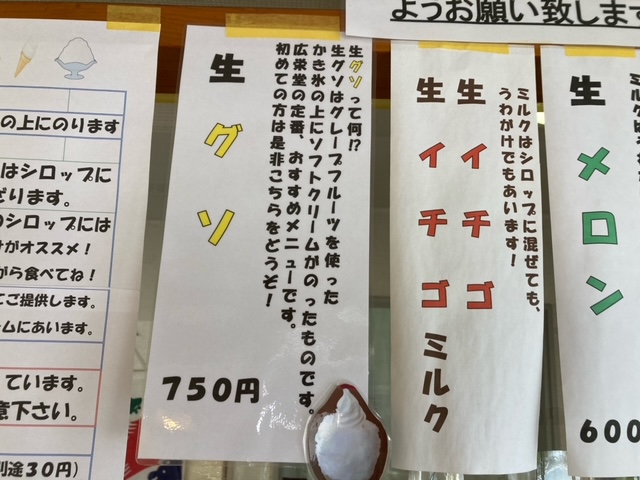 ようお願い致します
の上にのります
はシロップに
ざります。
のシロップには
がオススメ！
がら食べてね！
てご提供します。
ームにあいます。
ています。
意下さい。
別途30円）
生グソ
生グソって何!?
生グソはグレープフルーツを使った
かき氷の上にソフトクリームがのったものです。
広栄堂の定番、おすすめメニューです。
初めての方は是非こちらをどうぞ！
750円
ミルクはシロップに混ぜても、
うわがけでもあいます！
生イチゴ
生イチゴミルク
生メロン
600